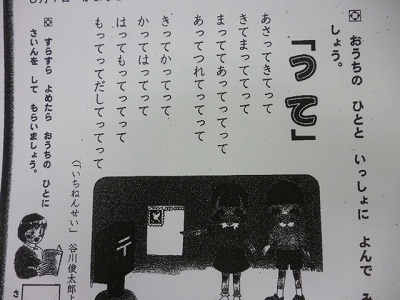 おうちの ひとと いっしょに よんで み
しょう。
「って」
あさってきてって
きてまってって
まっててあってってって
あってつれてってって
きってかってって
かってはってって
はってもってってって
もってってだしてってって
(「いちねんせい」 谷川俊太郎よ
すらすら よめたら おうちの ひとに
さいんを して もらいましょう。
〒
さ